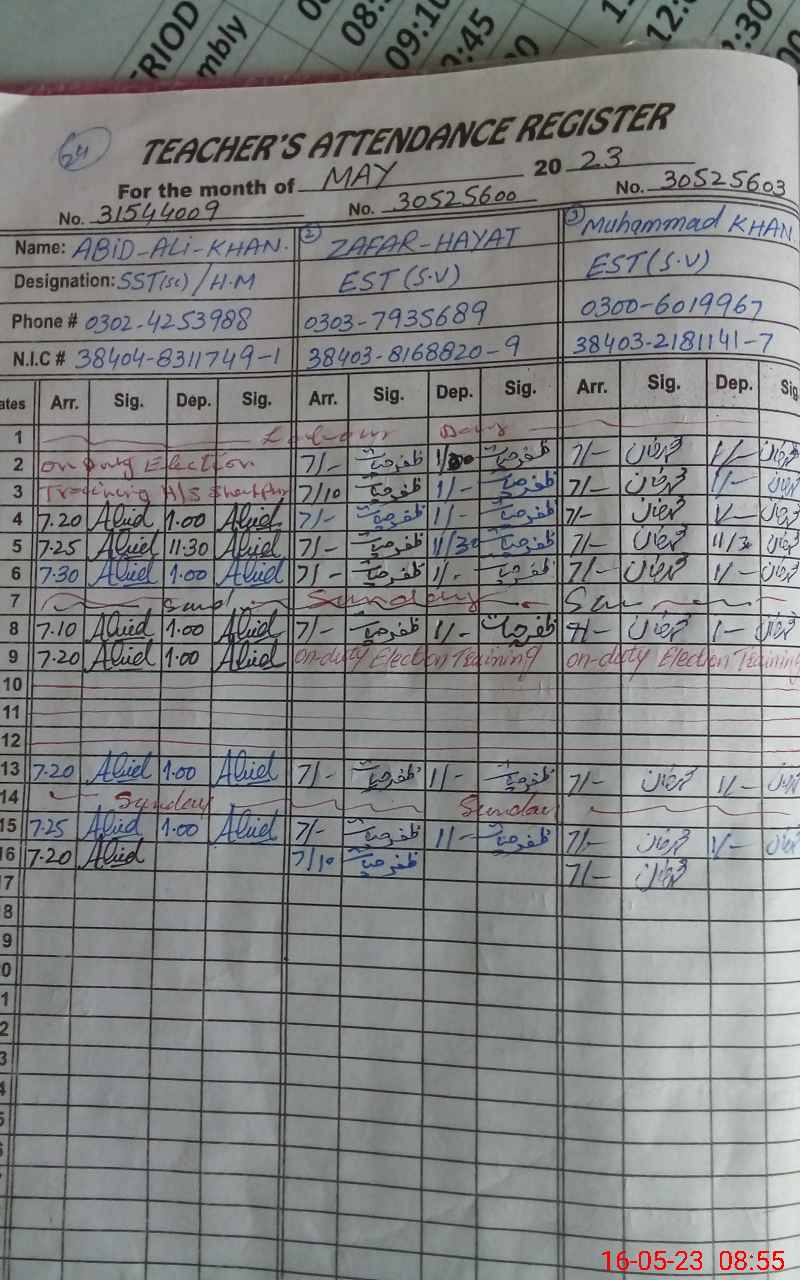 RIOD
mbly
08:
09:10
:45
:30
64
TEACHER'S ATTENDANCE REGISTER
For the month of MAY 2023
No. 31544009 No. 30525600 No. 30525603
Name: ABID-ALI-KHAN. ② ZAFAR-HAYAT ③ Muhammad KHAN
Designation: SST(sc)/H.M EST(S.V) EST(S.V)
Phone # 0302-4253988 0303-7935689 0300-6019967
N.I.C # 38404-8311749-1 38403-8168820-9 38403-2181141-7
ates Arr. Sig. Dep. Sig. Arr. Sig. Dep. Sig. Arr. Sig. Dep. Sig
1 Labour Day
2 Election 7/- ظفر حیات ظفر حیات 7/- محمد خان 1/- محمد خان
3 Training 7/10 ظفر حیات 1/- ظفر حیات 7/- محمد خان 1/- محمد خان
4 7.20 Abid 1.00 Abid 7/- ظفر حیات 1/- ظفر حیات 7/- محمد خان 1/- محمد خان
5 7.25 Abid 11.30 Abid 7/- ظفر حیات 11/30 ظفر حیات 7/- محمد خان 11/30 محمد خان
6 7.30 Abid 1.00 Abid 7/- ظفر حیات 1/- ظفر حیات 7/- محمد خان 1/- محمد خان
7 Sunday
8 7.10 Abid 1.00 Abid 7/- ظفر حیات 1/- ظفر حیات 7/- محمد خان 1/- محمد خان
9 7.20 Abid 1.00 Abid on-duty Election Training on-duty Election Training
10
11
12
13 7.20 Abid 1.00 Abid 7/- ظفر حیات 1/- ظفر حیات 7/- محمد خان 1/- محمد خان
14 Sunday Sunday
15 7.25 Abid 1.00 Abid 7/- ظفر حیات 1/- ظفر حیات 7/- محمد خان 1/- محمد خان
16 7.20 Abid 7/10 ظفر حیات 7/- محمد خان
17
8
9
0
1
2
3
4
5
16-05-23 08:55